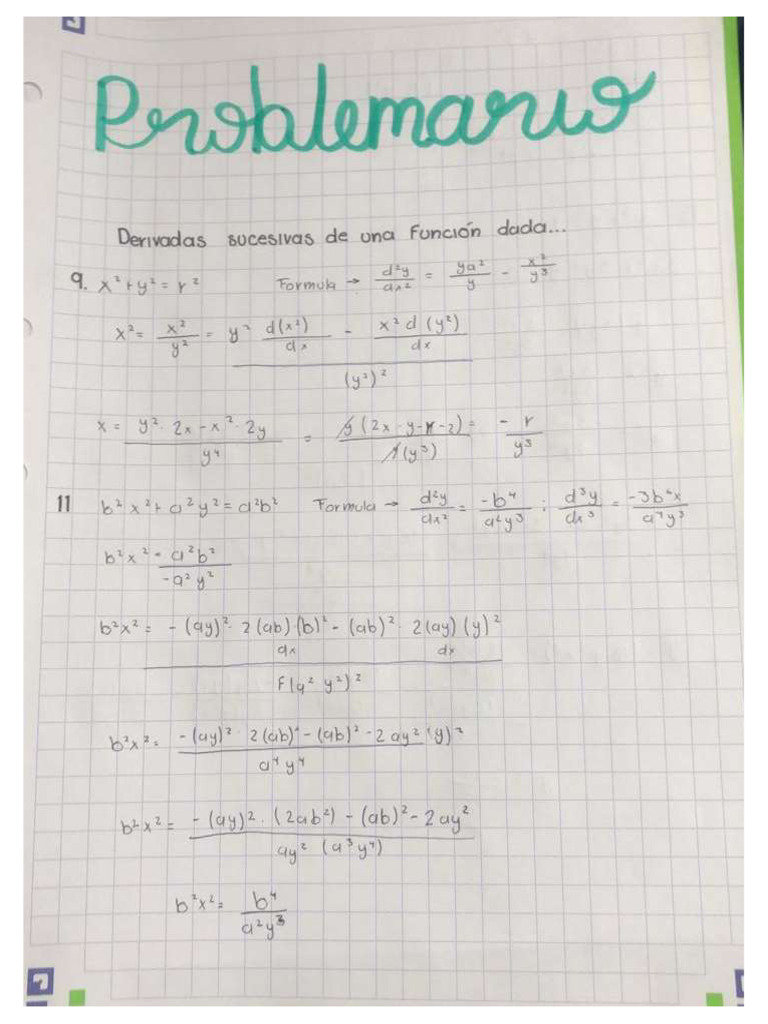 Problemario
Derivadas sucesivas de una Función dada...
9. x² + y² = r² Formula → d²y/dx² = ya²/y - x²/y³
x² = x²/y² = y² d(x²)/dx - x² d(y²)/dx
(y²)²
x = y² · 2x - x² · 2y / y⁴ = y(2x - y - - 2) / (y³) = - r/y³
11 b²x² + a²y² = a²b² Formula → d²y/dx² = -b⁴/a²y³ ; d³y/dx³ = -3b⁶x/a⁴y³
b²x² - a²b²/-a²y²
b²x² = -(ay)² · 2(ab)(b)² - (ab)² · 2(ay)(y)²
dx dx
(a² y²)²
b²x² = -(ay)² · 2(ab)⁴ - (ab)² - 2ay² (y)² / a⁴y⁴
b²x² = -(ay)² · (2ab²) - (ab)² - 2ay² / ay² (a³y⁴)
b²x² = b⁴/a²y³